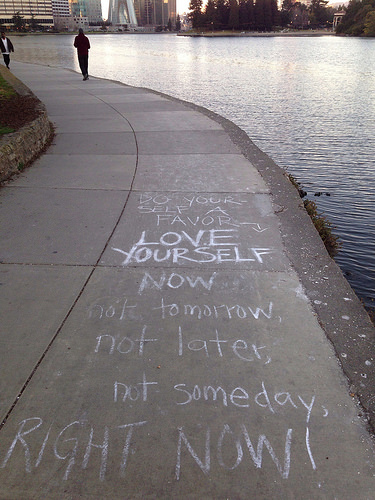 DO YOUR-
SELF A
FAVOR →
LOVE
YOURSELF
NOW
not tomorrow,
not later,
not someday,
RIGHT NOW!